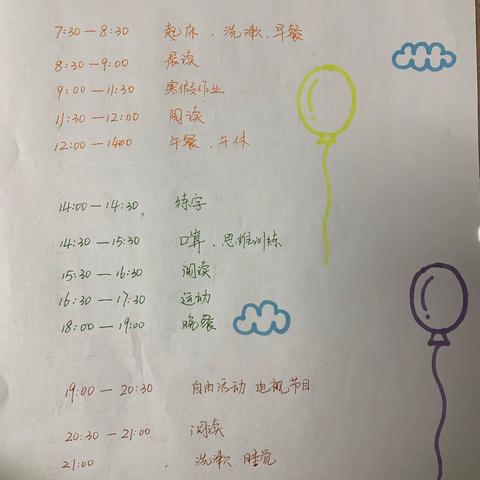 7:30—8:30 起床、洗漱、早餐
8:30—9:00 晨读
9:00—11:30 寒假作业
11:30—12:00 阅读
12:00—14:00 午餐、午休
14:00—14:30 练字
14:30—15:30 口算、思维训练
15:30—16:30 阅读
16:30—17:30 运动
18:00—19:00 晚餐
19:00—20:30 自由活动 电视节目
20:30—21:00 阅读
21:00 洗漱、睡觉